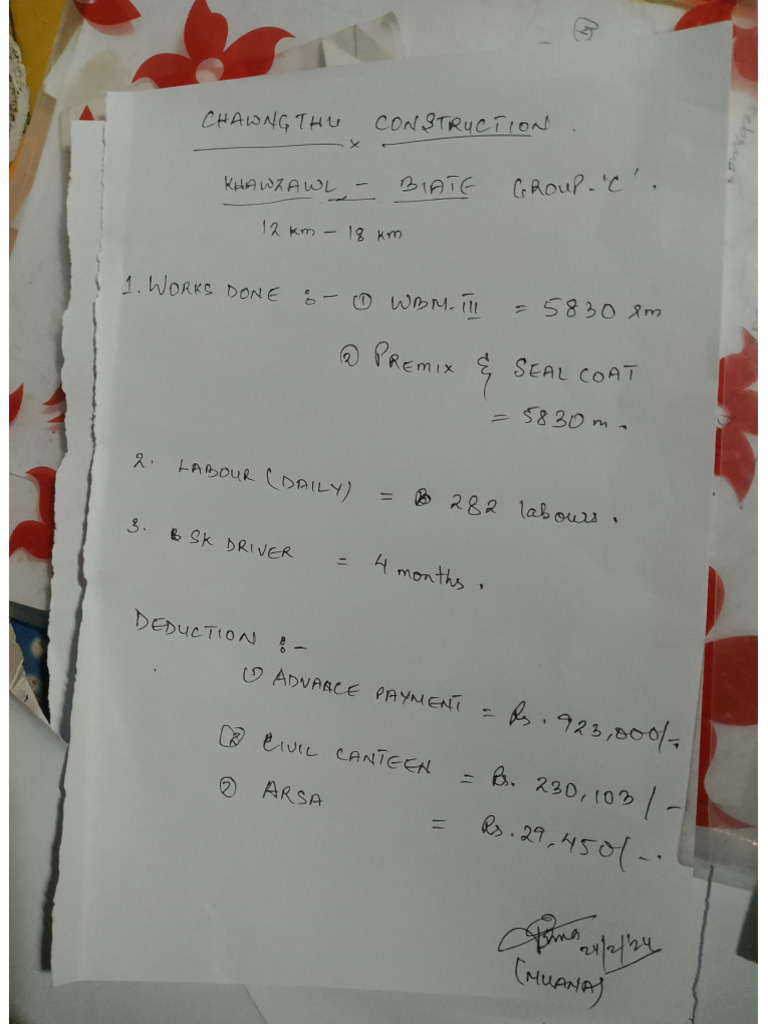 CHAWNGTHU CONSTRUCTION.
x
KHAWZAWL - BIATE GROUP-'C'.
12 KM - 18 KM
1. WORKS DONE :- ① WBM-III = 5830 rm
② PREMIX & SEAL COAT
= 5830 m.
2. LABOUR (DAILY) = 282 labours.
3. SK DRIVER = 4 months.
DEDUCTION :-
① ADVANCE PAYMENT = Rs. 923,000/-
CIVIL CANTEEN = Rs. 230,103/-
② ARSA = Rs. 29,450/-.
24/2/'24
(MUANA)